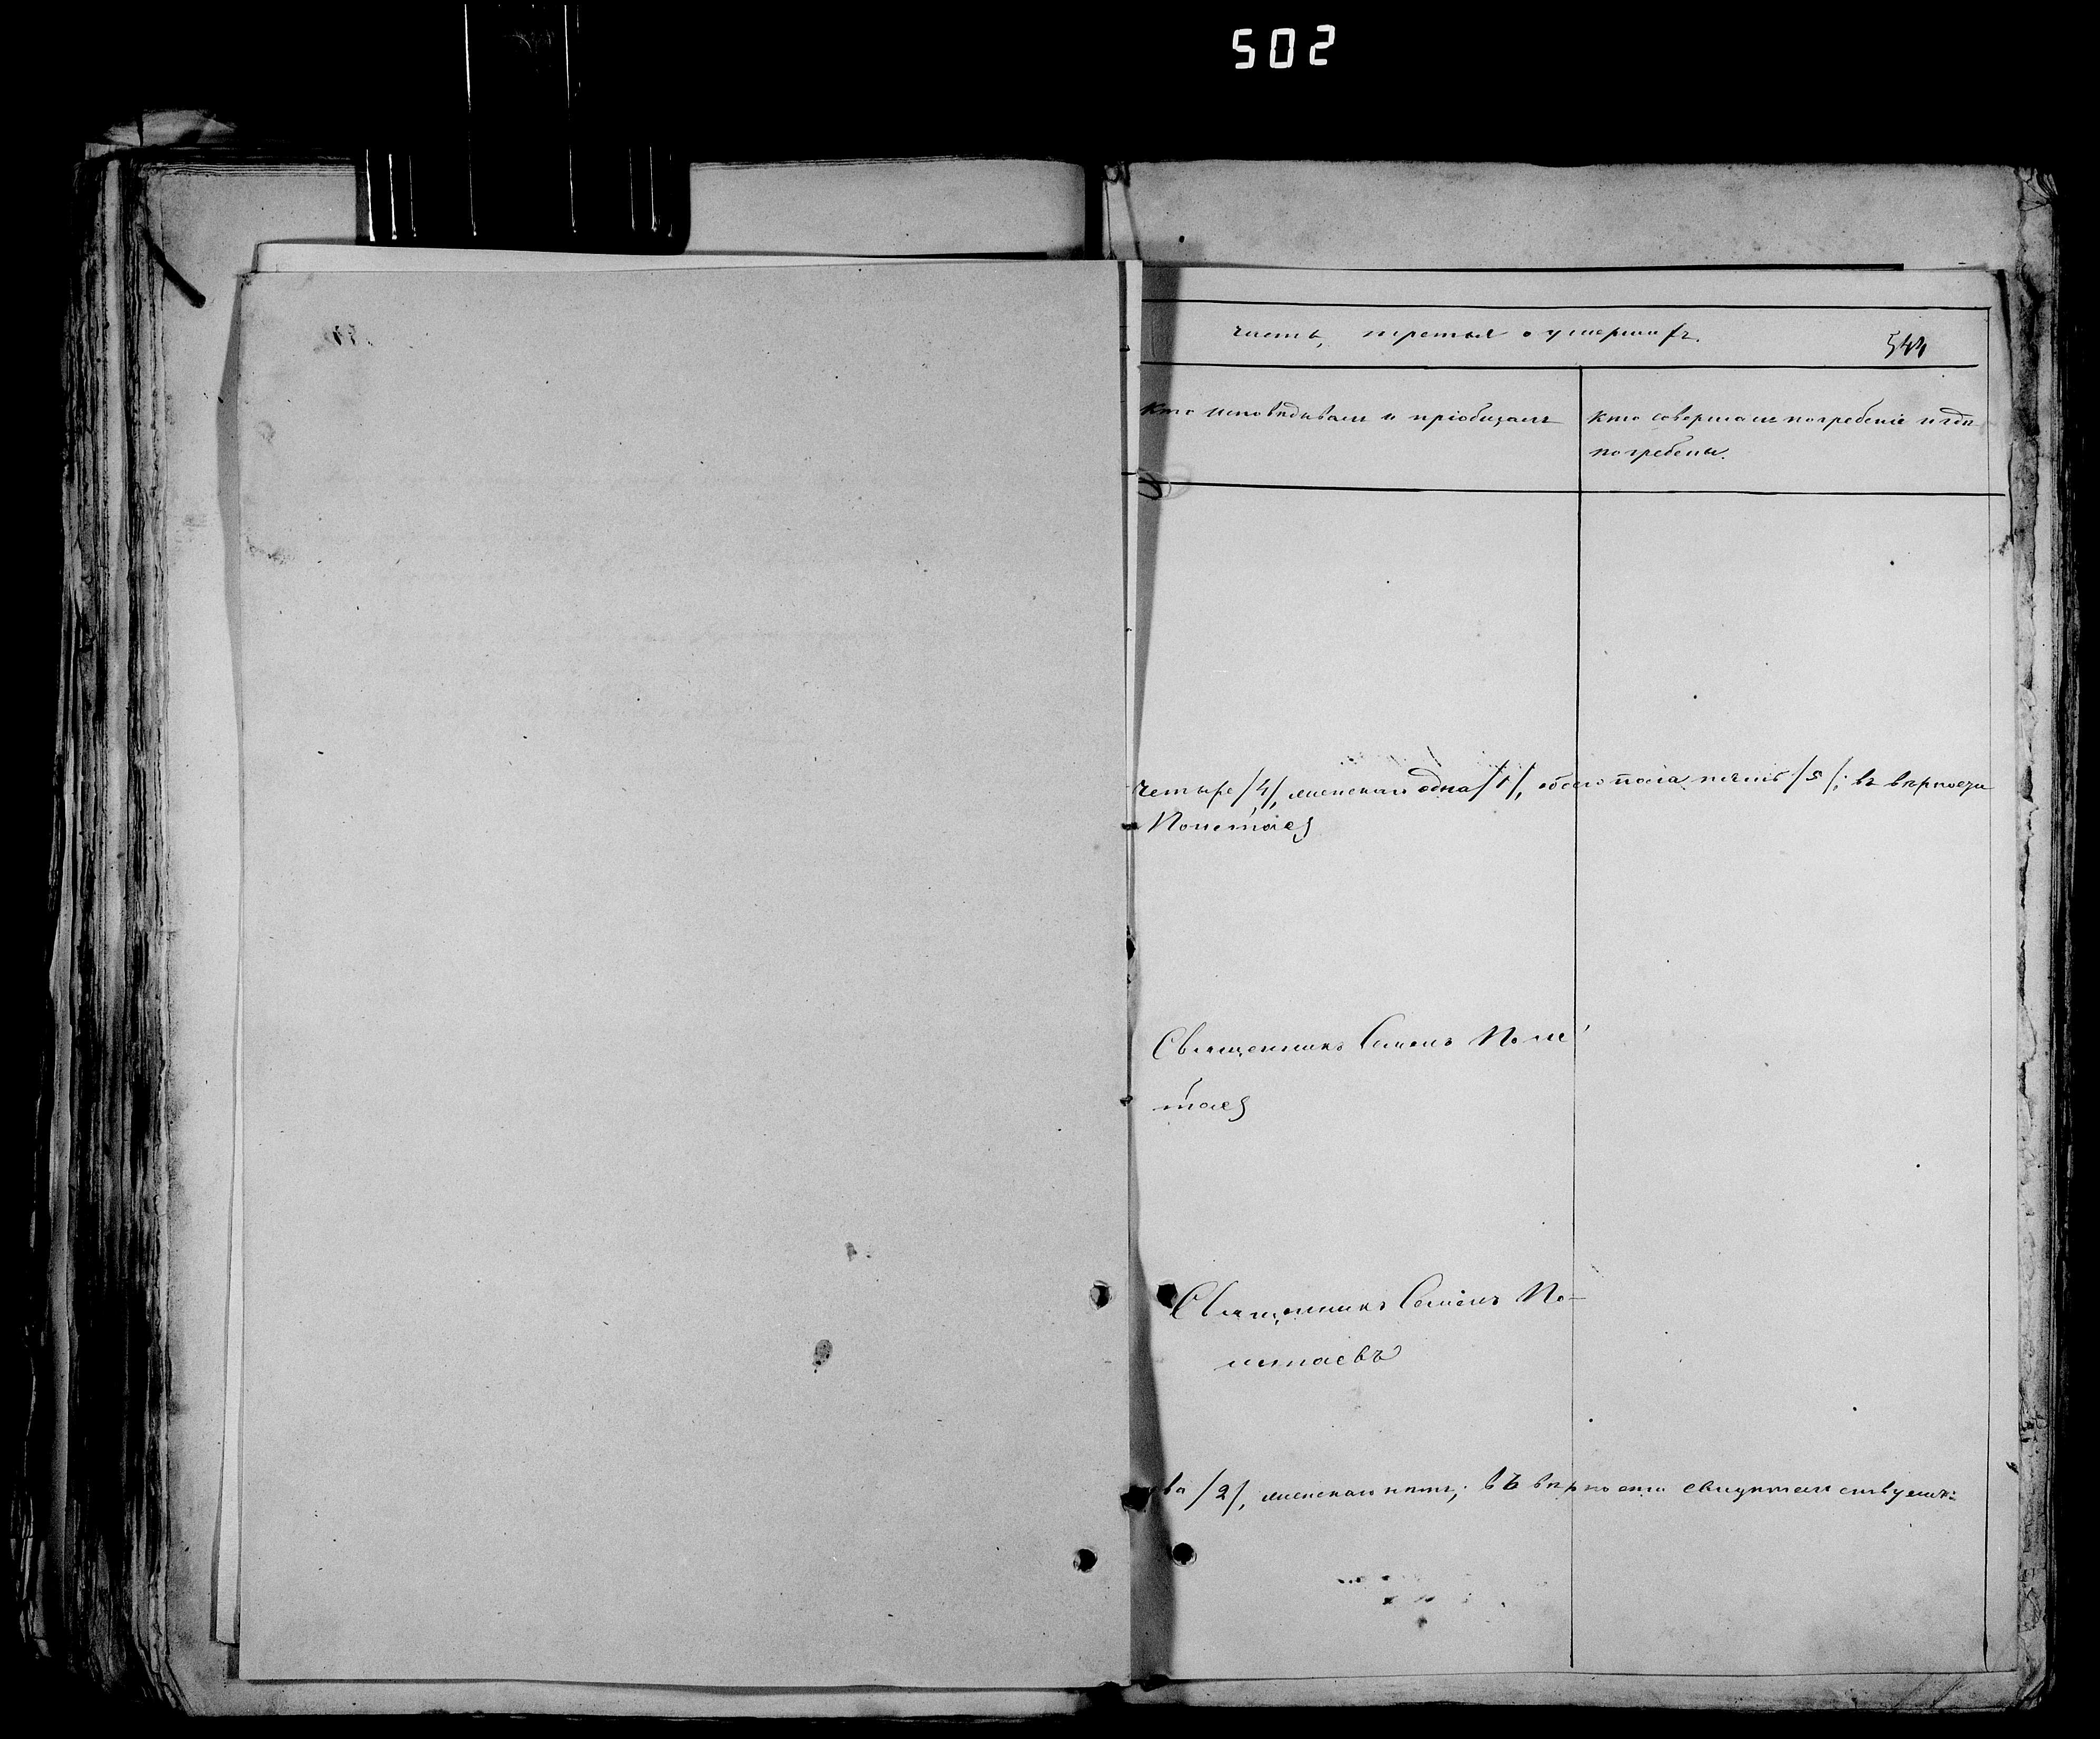 502
часть, третья о умершихъ.
544
Кто исповѣдывалъ и пріобщалъ
Кто совершалъ погребеніе и гдѣ
погребены.
четыре /4/, женскаго одна /1/, обоего пола пять /5/; въ вѣрности
Полетаев
Священникъ Симеонъ Поле
таев
Священникъ Семіонъ По-
летаевъ
ва /2/, женскаго пять; въ вѣрности свидѣтельствуемъ: